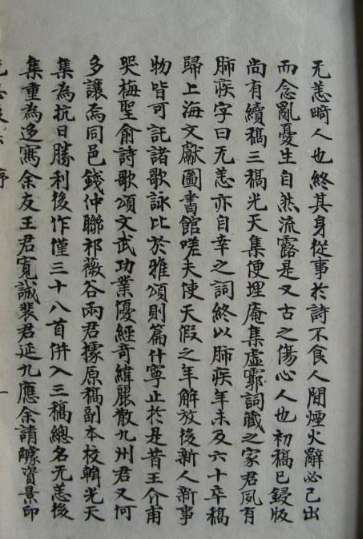 无恙畸人也終其身從事於詩不食人間煙火辭必己出
而念亂憂生自然流露是又古之傷心人也初稿已鋟版
尚有續稿三稿光天集便埋庵集虛霩詞藏之家君夙有
肺疾字曰无恙亦自幸之詞終以肺疾年未及六十卒稿
歸上海文獻圖書館嗟夫使天假之年解放後新人新事
物皆可託諸歌詠比於雅頌則篇什寧止於是昔王介甫
哭梅聖俞詩歌頌文武功業優經奇緯麗散九州君又何
多讓焉同邑錢仲聯祁薇谷兩君據原稿副本校輯光天
集為抗日勝利後作僅三十八首併入三稿總名无恙後
集重為迻寫余友王君寬誠裴君延九應余請醵資景印